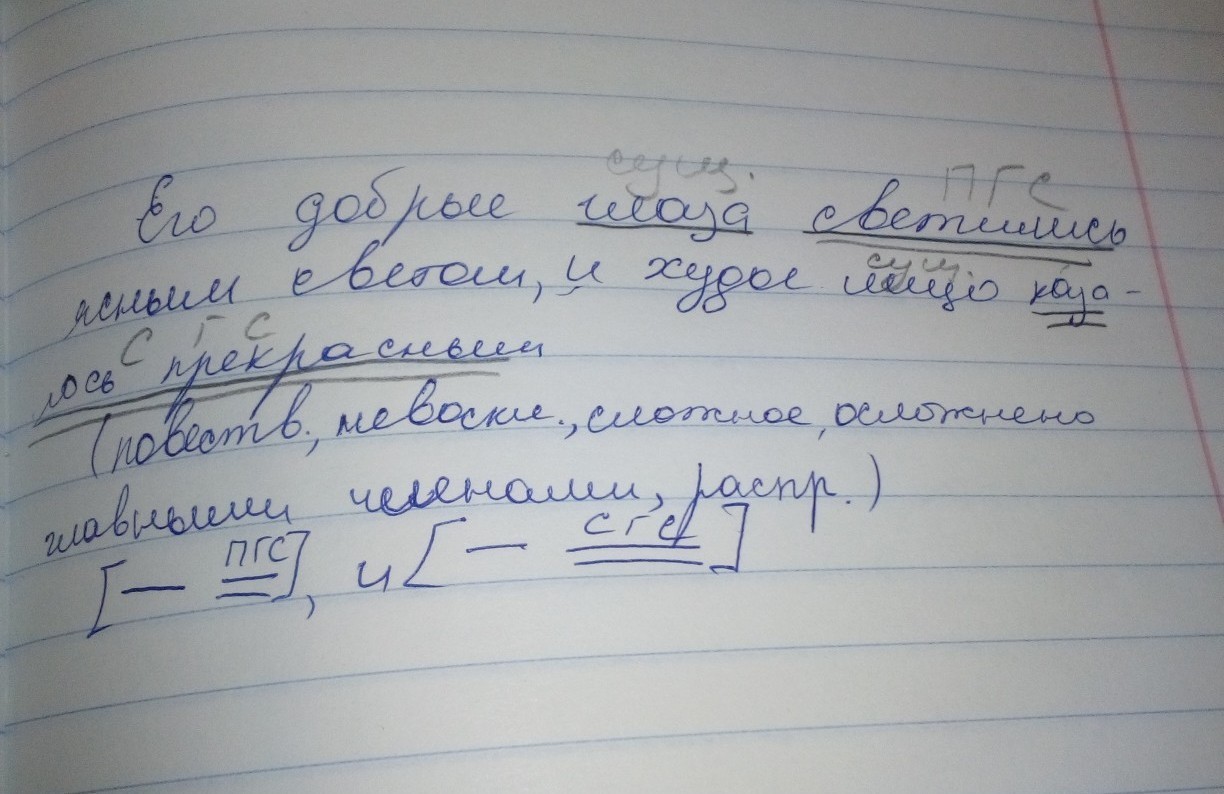 сущ. ПГС
Его добрые глаза светились
сущ.
ясным светом, и худое лицо каза-
С Г С
лось прекрасным
(повеств., невоскл., сложное, осложнено
главными членами, распр.)
[— ПГС], и [— СГС]